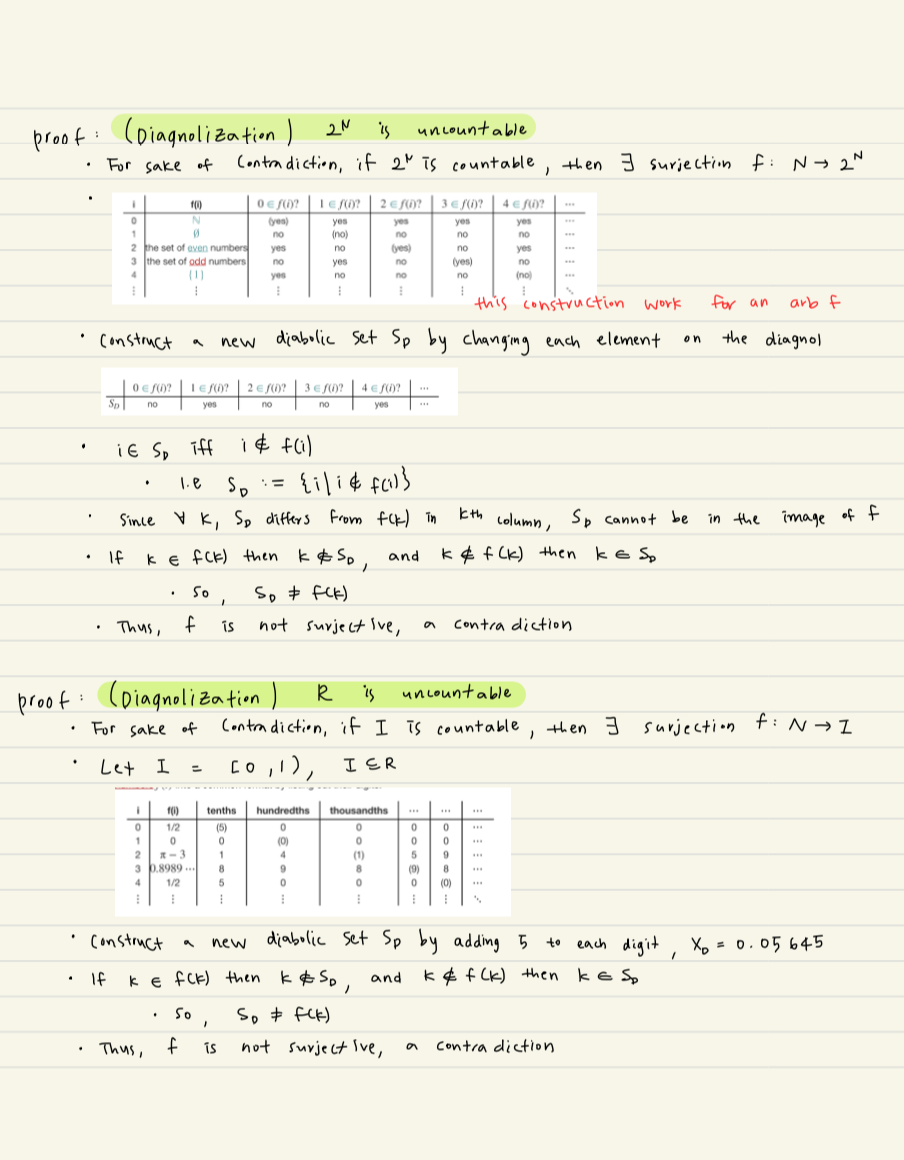 proof : (Diagnolization) 2^N is uncountable
• For sake of Contradiction, if 2^N is countable, then ∃ surjection f: N → 2^N
•
i f(i) 0 ∈ f(i)? 1 ∈ f(i)? 2 ∈ f(i)? 3 ∈ f(i)? 4 ∈ f(i)? ...
0 N (yes) yes yes yes yes ...
1 ∅ no (no) no no no ...
2 the set of even numbers yes no (yes) no yes ...
3 the set of odd numbers no yes no (yes) no ...
4 {1} yes no no no (no) ...
⋮ ⋮ ⋮ ⋮ ⋮ ⋮ ⋮ ⋱
this construction work for an arb f
• Construct a new diabolic set S_D by changing each element on the diagnol
0 ∈ f(i)? 1 ∈ f(i)? 2 ∈ f(i)? 3 ∈ f(i)? 4 ∈ f(i)? ...
S_D no yes no no yes ...
• i ∈ S_D iff i ∉ f(i)
• i.e S_D := {i | i ∉ f(i)}
• Since ∀ k, S_D differs from f(k) in kth column, S_D cannot be in the image of f
• If k ∈ f(k) then k ∉ S_D, and k ∉ f(k) then k ∈ S_D
• So, S_D ≠ f(k)
• Thus, f is not surjective, a contradiction
proof : (Diagnolization) R is uncountable
• For sake of Contradiction, if I is countable, then ∃ surjection f: N → I
• Let I = [0,1), I ⊆ R
i f(i) tenths hundredths thousandths ... ... ...
0 1/2 (5) 0 0 0 0 ...
1 0 0 (0) 0 0 0 ...
2 π − 3 1 4 (1) 5 9 ...
3 0.8989 ... 8 9 8 (9) 8 ...
4 1/2 5 0 0 0 (0) ...
⋮ ⋮ ⋮ ⋮ ⋮ ⋮ ⋮ ⋱
• Construct a new diabolic set S_D by adding 5 to each digit, X_D = 0.05645
• If k ∈ f(k) then k ∉ S_D, and k ∉ f(k) then k ∈ S_D
• So, S_D ≠ f(k)
• Thus, f is not surjective, a contradiction